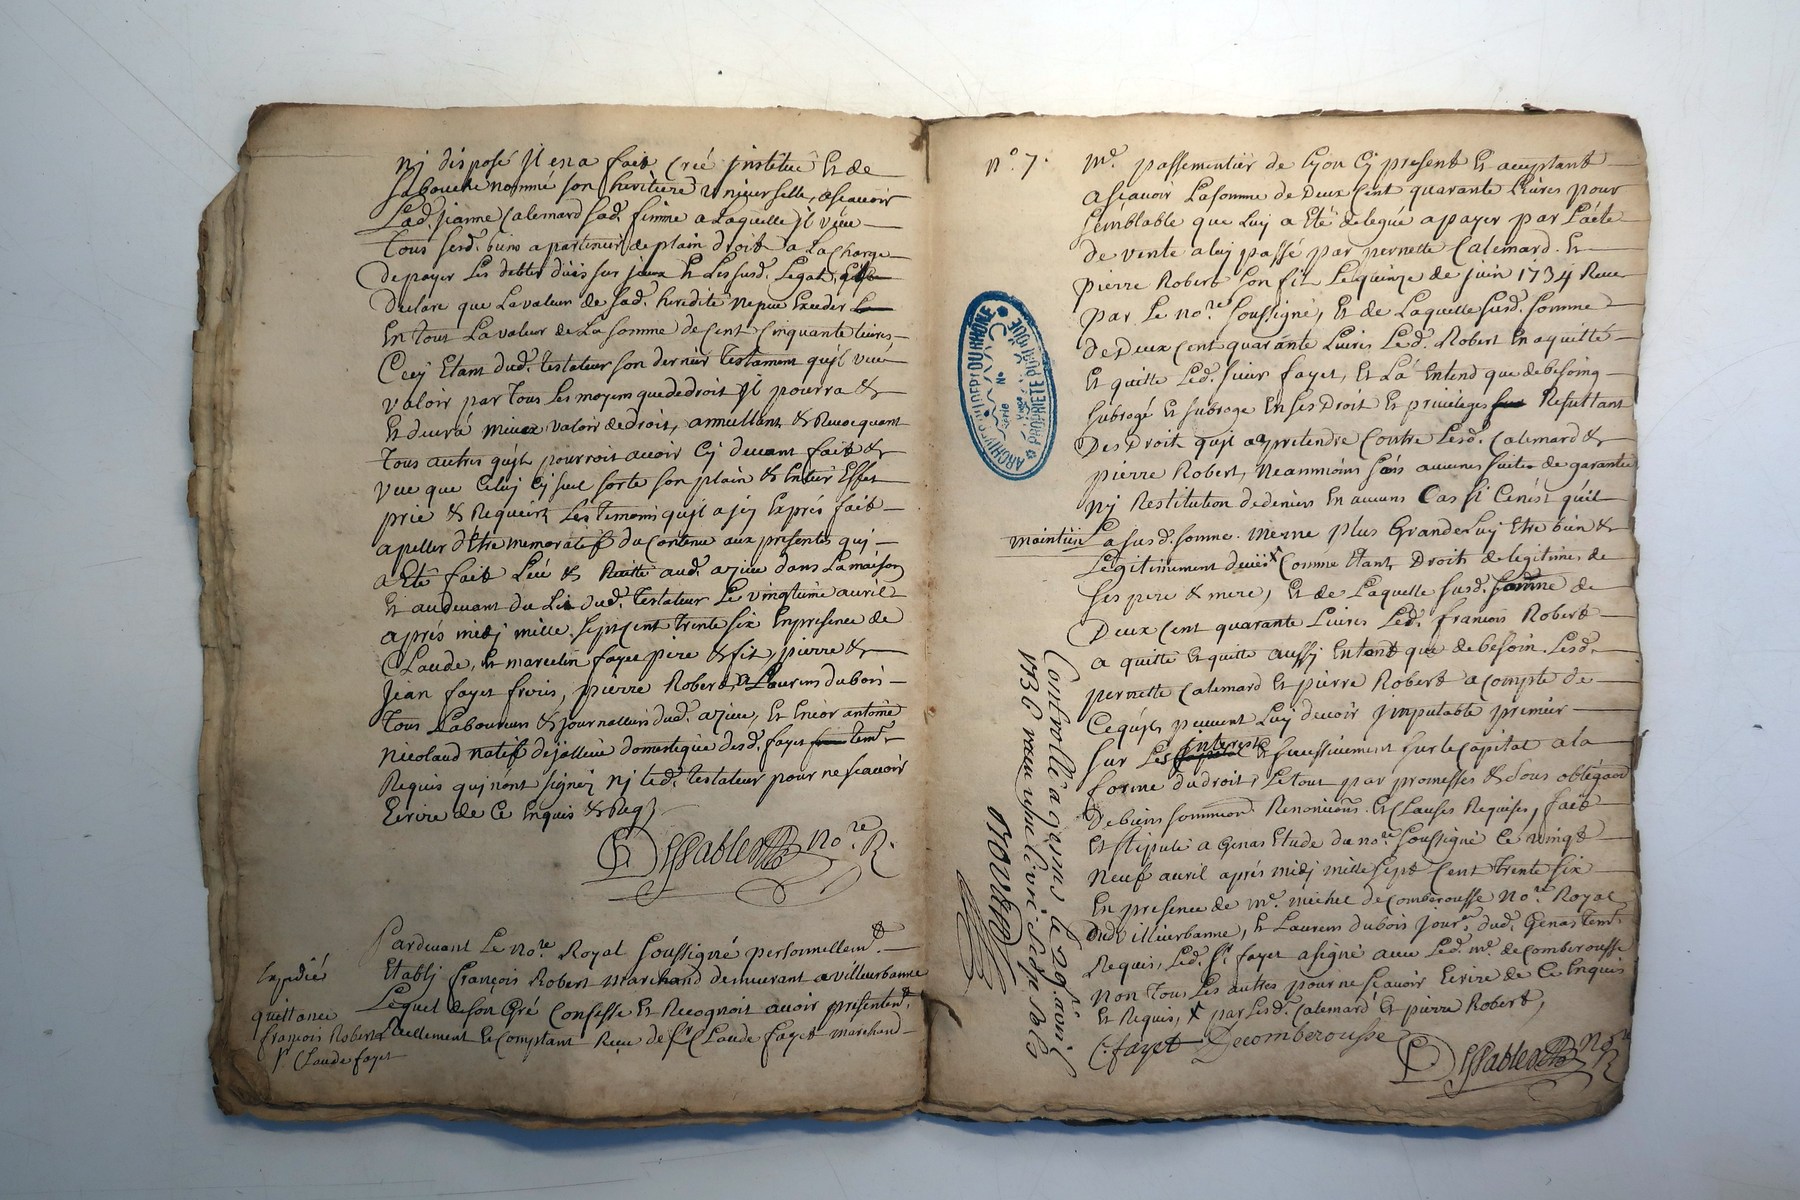 nj disposé Il en a fait Créé Institue Et de
sa bouche nommé son heritiere Universelle, ascavoir
Lad. jeanne Calemard sad. femme a Laquelle Il veu
Tous sesd. biens apartenir de plain droit a La Charge
De payer Les debtes duës sur jceux Et Les susd. Legats,
Declare que La valeur de sad. heredité ne peu Exceder
En tout La valeur de La somme de Cent Cinquante livres
Cecy Etant dud. testateur son dernier Testament qu'jl veu
valoir par Tous Les moyens que de droit Il pourra &
Et devrá mieux valoir de droit, annullant & Revocquant
Tous autres qu'jl pourroit avoir Cy devant fait &
veu que Celuy Cy seul sorte son plain & Entier Effet
prie & Requeirt Les Temoins qu'jl a jcy Exprés fait
apeller d'être memoratif du Contenu aux presentes qui
a Eté fait Leu & Recitte aud. azieu dans La maison
Et au devant du Lit dud. Testateur Le vingtieme avril
aprés midj mille sept Cent trente six En presence de
Claude, Et marcelin fayet pere & fils, pierre &
Jean fayet freres, pierre Robert, & Laurens dubois
Tous Laboureurs & journalliers dud. azieu, Et Encor antoine
Nicolaud natif de jallieu domestique desd. fayet temt.
Requis qui n'ont signez nj led. testateur pour ne scavoir
Ecrire de Ce Enquis & Reqs
Dessables No.re R.
Pardevant Le No.re Royal Soussigné personnellemt.
Expedié
Etablj françois Robert Marchand demeurant a villeurbanne
Lequel de son Gré Confesse Et Recognoit avoir presentemt.
quittance
françois Robert
Reellement Et Comptant Reçu de Sr. Claude fayet marchand
pr. Claude fayet
No. 7.
Me. passementier de Lyon Cy present Et aceptant
ascavoir La somme de Deux Cent quarante Livres pour
semblable que Luy a Eté delegué a payer par L'acte
de vente a luy passé par pernette Calemard. Et
pierre Robert son fils Le quinze de juin 1734 Reçu
par Le no.re soussigné, Et de Laquelle susd. somme
de Deux Cent quarante Livres Led. Robert En a quitté
Et quitte Led. sieur fayet, Et L'a Entend que de besoing
subrogé Et subroge En ses Droit Et privileges Resultant
Des Droits qu'jl a a pretendre Contre Lesd. Calemard &
pierre Robert, Neanmoins sans aucunes suites de garantie
Nj Restitution de deniers En aucuns Cas si Cen'est qu'il
maintien La susd. somme. Meme plus Grande Luy Etre bien &
Legitimement duës x Comme Etant Droits de legitimes de
ses pere & mere, Et de Laquelle susd. somme de
Deux Cent quarante Livres Led. françois Robert
a quitté Et quitte aussy Entant que de besoin. Lesd.
pernette Calemard Et pierre Robert a Compte de
Ce qu'jls peuvent Luy devoir Imputable premier
Sur Les interets & successivement sur Le Capital a la
forme du droit, Le tout par promesses & sous obligaon
De biens soumission Renonciaons. Et Clauses Requises, fait
Et stipulé a Genas Etude du no.re soussigné Ce vingt
Neuf avril aprés midj mille sept Cent trente six
En presence de Me. michel de Comberousse No.re Royal
Dud. villeurbanne, Et Laurens dubois Jour.er dud. Genas temt.
Requis, Led. Sr. fayet a signé avec Led. me. de Comberousse
non Tous Les autres pour ne scavoir Ecrire de Ce Enquis
Et Requis, x par Lesd. Calemard Et pierre Robert,
C. fayet Decomberousse
Dessables No.re R
Controllé a genas le 29e. avril
1736 recu une livre
ARCHIVES DU DEPT DU RHÔNE
PROPRIETE PUBLIQUE
Série No